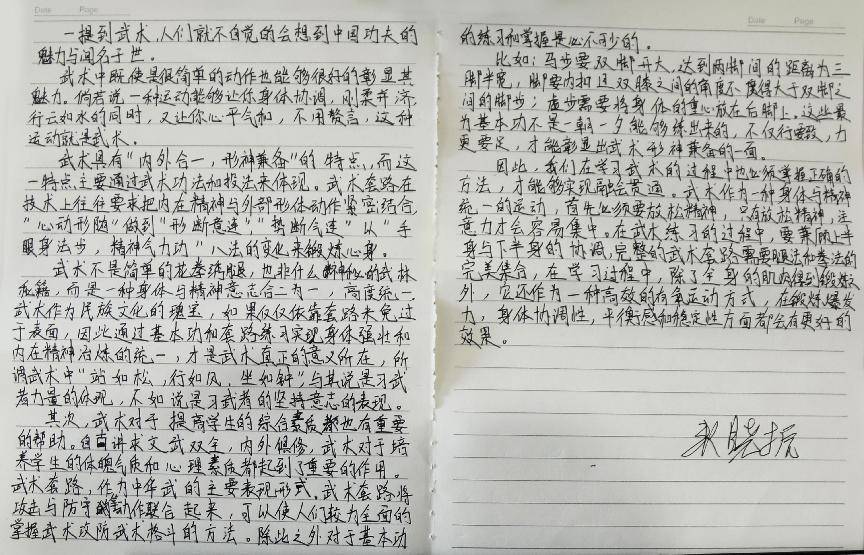 Date Page
一提到武术,人们就不自觉的会想到中国功夫的
魅力与闻名于世。
武术中既使是很简单的动作也能够很好的彰显其
魅力。倘若说一种运动能够让你身体协调,刚柔并济,
行云如水的同时,又让你心平气和,不用赘言,这种
运动就是武术。
武术具有“内外合一,形神兼备”的特点,而这
一特点主要通过武术功法和技法来体现。武术套路在
技术上往往要求把内在精神与外部形体动作紧密结合,
“心动形随”做到“形断意连”“势断气连”以“手
眼身法步,精神气力功”八法的变化来锻炼心身。
武术不是简单的花拳绣腿,也非什么神秘的武林
秘籍,而是一种身体与精神意志合二为一,高度统一
武术作为民族文化的理论,如果仅仅依靠套路未免过
于表面,因此通过基本功和套路练习实现身体强壮和
内在精神冶炼的统一,才是武术真正的意义所在,所
谓武术中“站如松,行如风,坐如钟”,与其说是习武
者力量的体现,不如说是习武者的坚持意志的表现。
其次,武术对于提高学生的综合素质都也有重要
的帮助。自古讲求文武双全,内外俱修,武术对于培
养学生的体魄气质和心理素质都起到了重要的作用。
武术套路,作为中华武的主要表现形式,武术套路将
攻击与防守等动作联合起来,可以使人们较为全面的
掌握武术攻防武术格斗的方法。除此之外对于基本功
Date Page
的练习和掌握是必不可少的。
比如:马步要双脚开大,达到两脚间的距离为三
脚半宽,脚要内扣且双膝之间的角度不得大于双脚之
间的脚步;虚步需要将身体的重心放在后脚上。这些最
为基本功不是一朝一夕能够练出来的,不仅行要致,力
更要足,才能彰显出武术形神兼备的一面。
因此,我们在学习武术的过程中也必须掌握正确的
方法,才能够实现融会贯通。武术作为一种身体与精神
统一的运动,首先必须要放松精神,只有放松精神,注
意力才会容易集中。在武术练习的过程中,要兼顾上半
身与下半身的协调,完整的武术套路需要腿法和拳法的
完美集合,在学习过程中,除了全身的肌肉得到锻炼
外,它还作为一种高效的有氧运动方式,在锻炼爆发
力,身体协调性,平衡感和稳定性方面都会有更好的
效果。